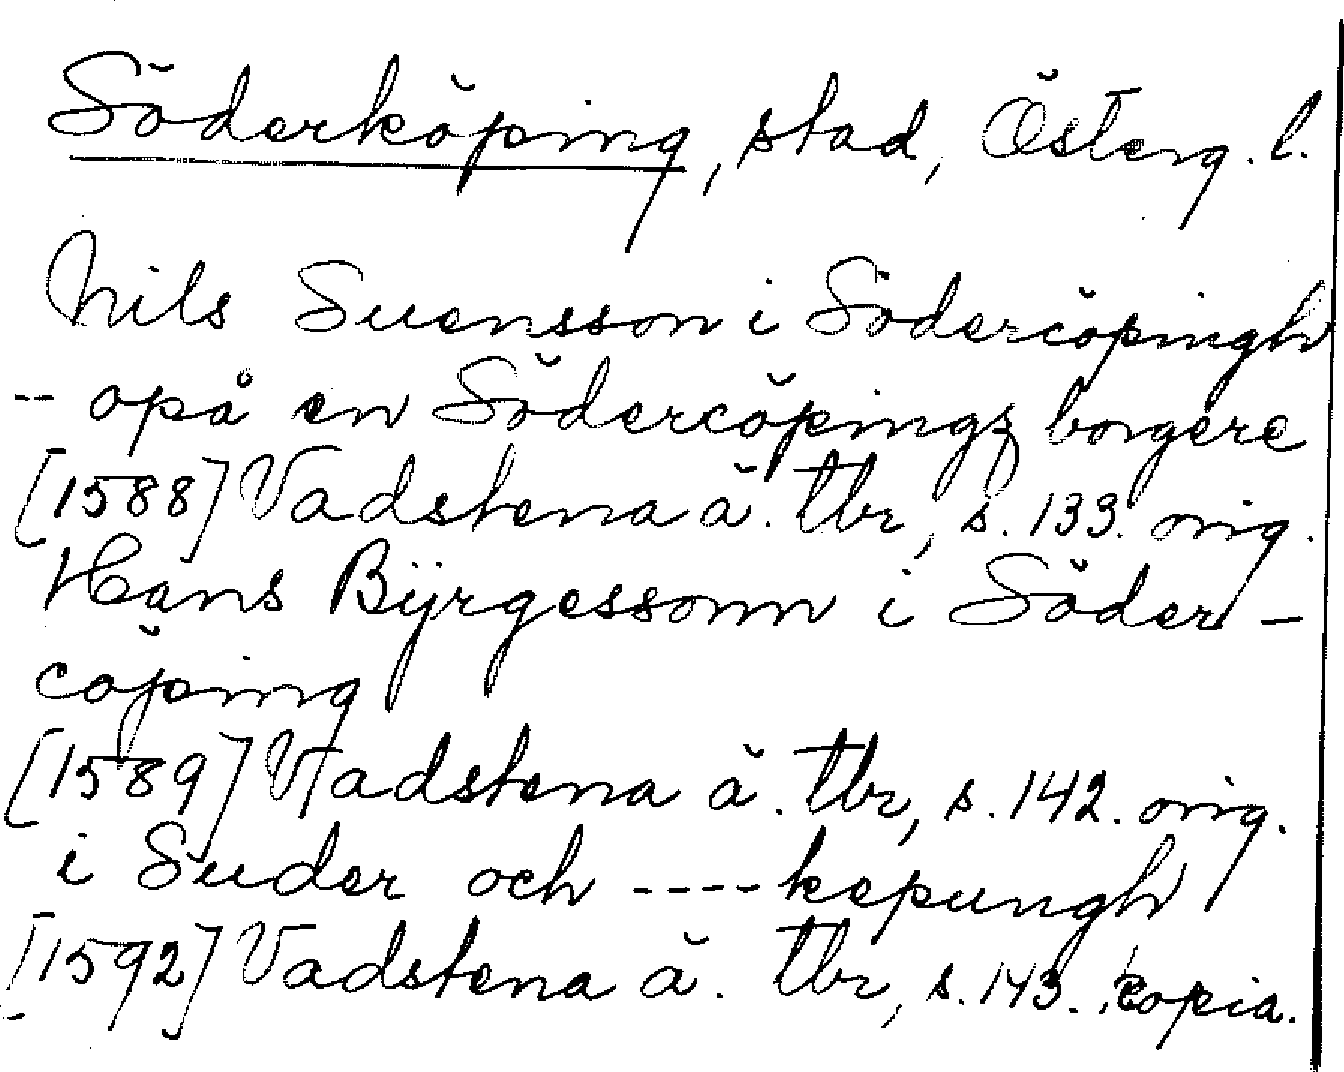 Söderköping, stad, Österg. l.
Nils Suensson i Södercöpingh
-- opå en Södercöpingz borgere
[1588] Vadstena ä. tbr, s. 133. orig.
Hans Bÿrgessonn i Söder-
cöping
[1589] Vadstena ä. tbr, s. 142. orig.
i Suder och ----kepungh
[1592] Vadstena ä. tbr, s. 143. kopia.